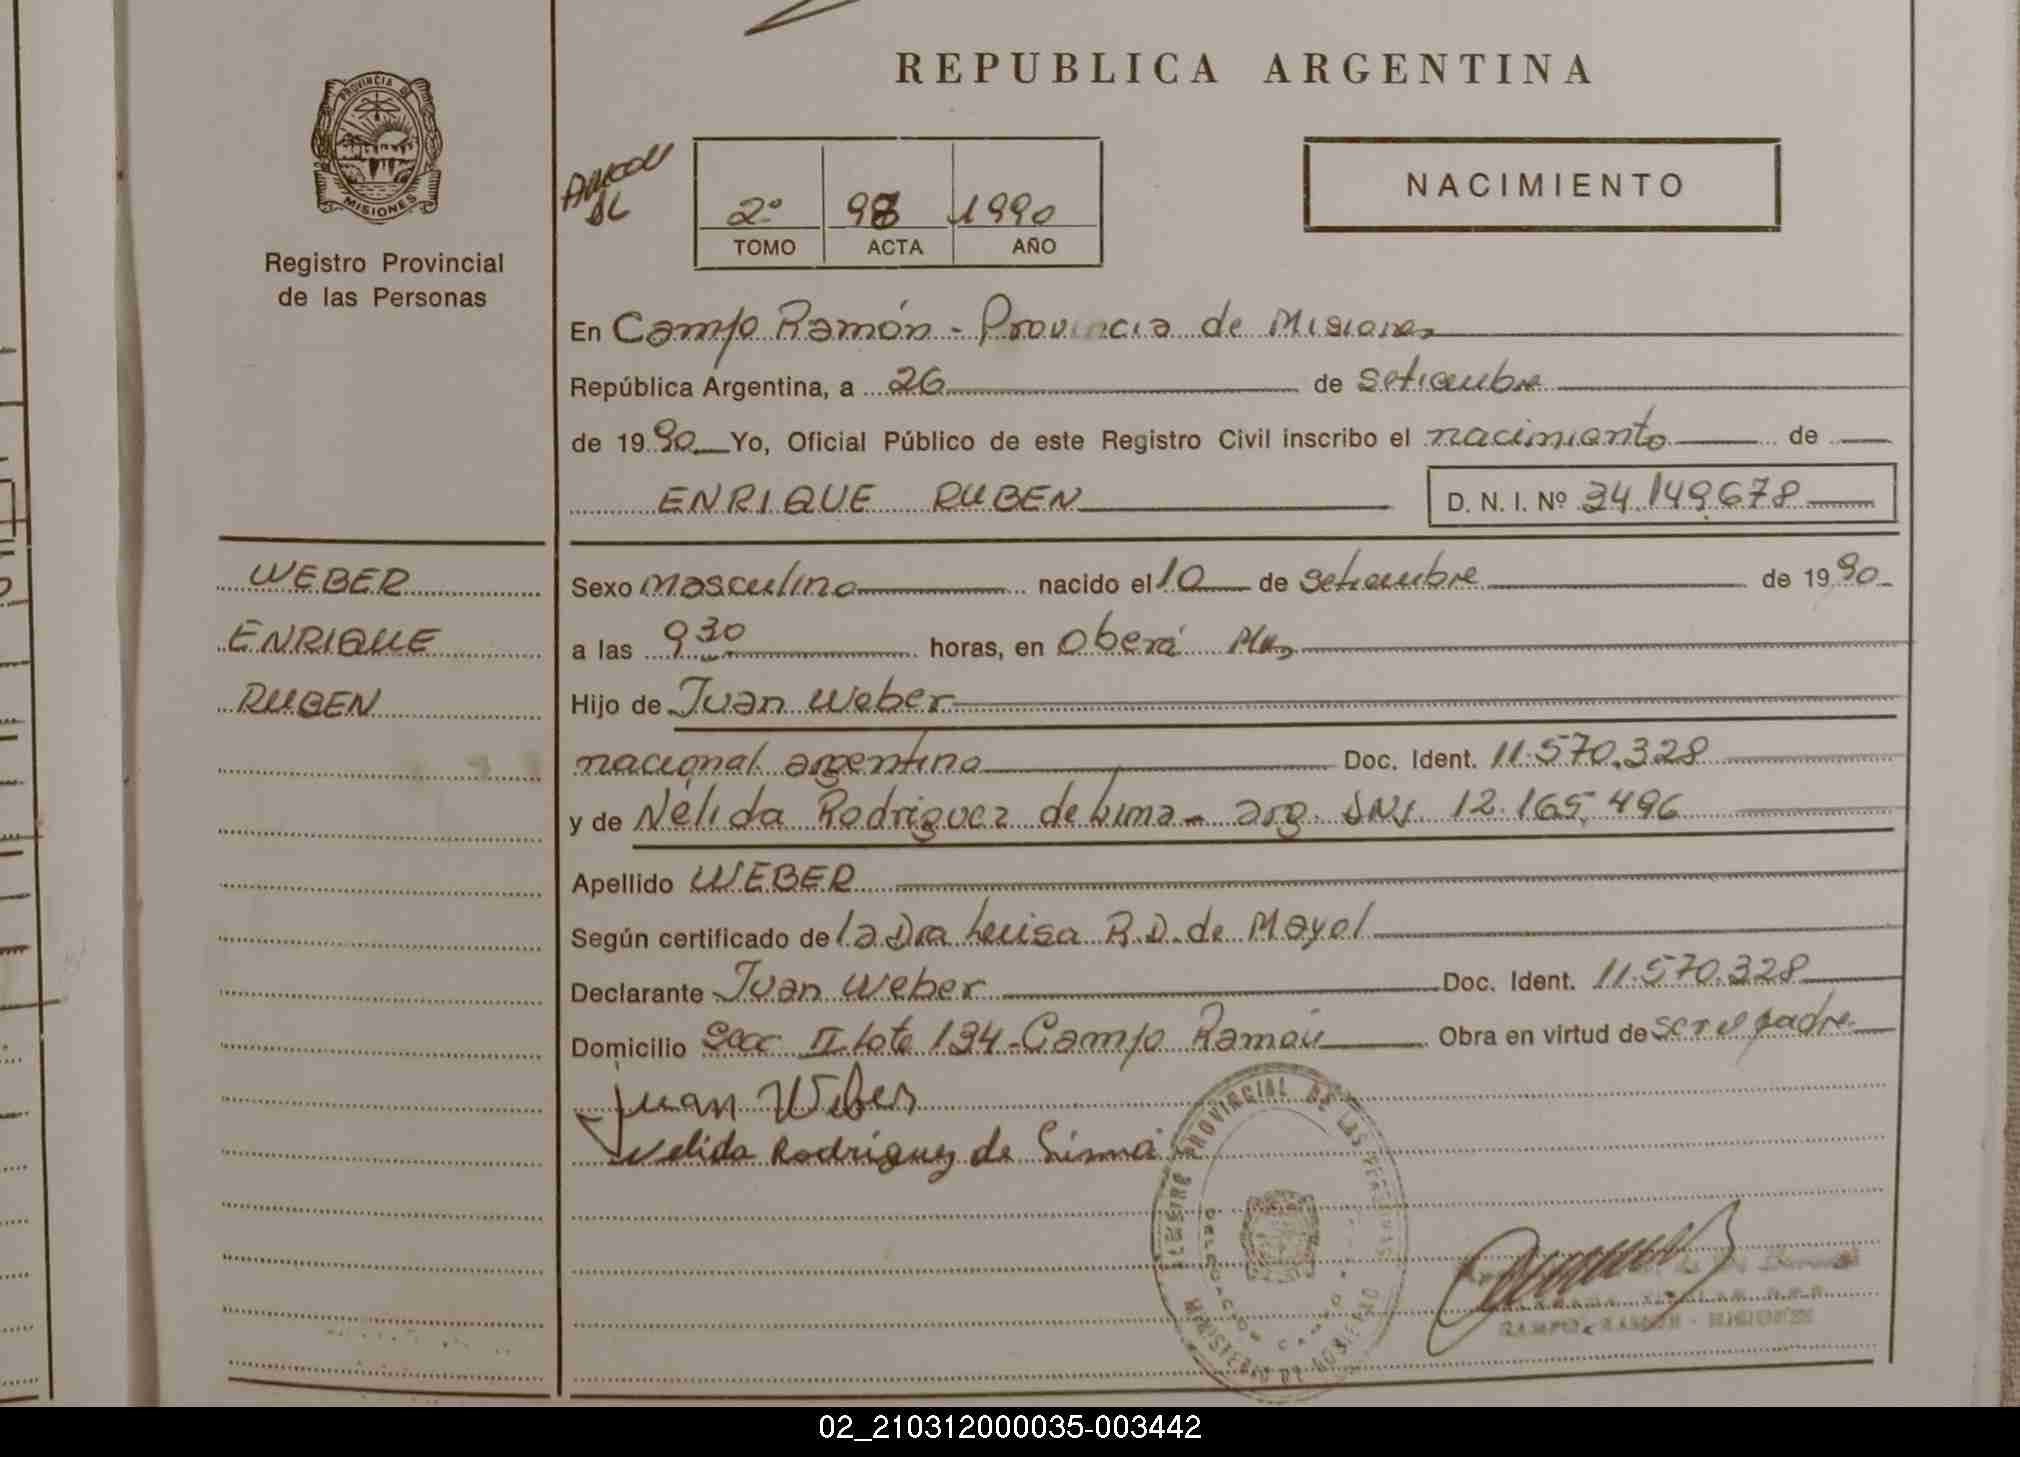 REPUBLICA ARGENTINA
PROVINCIA DE
MISIONES
Registro Provincial
de las Personas
2º 98 1990
TOMO ACTA AÑO
NACIMIENTO
En Campo Ramón - Provincia de Misiones
República Argentina, a 26 de setiembre
de 1990 Yo, Oficial Público de este Registro Civil inscribo el nacimiento de
ENRIQUE RUBEN D. N. I. Nº 34.149.678
WEBER
ENRIQUE
RUBEN
Sexo masculino nacido el 10 de setiembre de 1990
a las 9 30 horas, en Oberá Mnes
Hijo de Juan Weber
nacional argentina Doc. Ident. 11.570.328
y de Nélida Rodriguez de Lima - arg. DNI. 12.165.496
Apellido WEBER
Según certificado de la Dra Luisa R.D. de Mayol
Declarante Juan Weber Doc. Ident. 11.570.328
Domicilio Secc II lote 134 - Campo Ramón Obra en virtud de ser el padre
Juan Weber
Nelida Rodriguez de Lima
REGISTRO PROVINCIAL DE LAS PERSONAS
MINISTERIO DE GOBIERNO
CAMPO RAMON - MISIONES
02_210312000035-003442